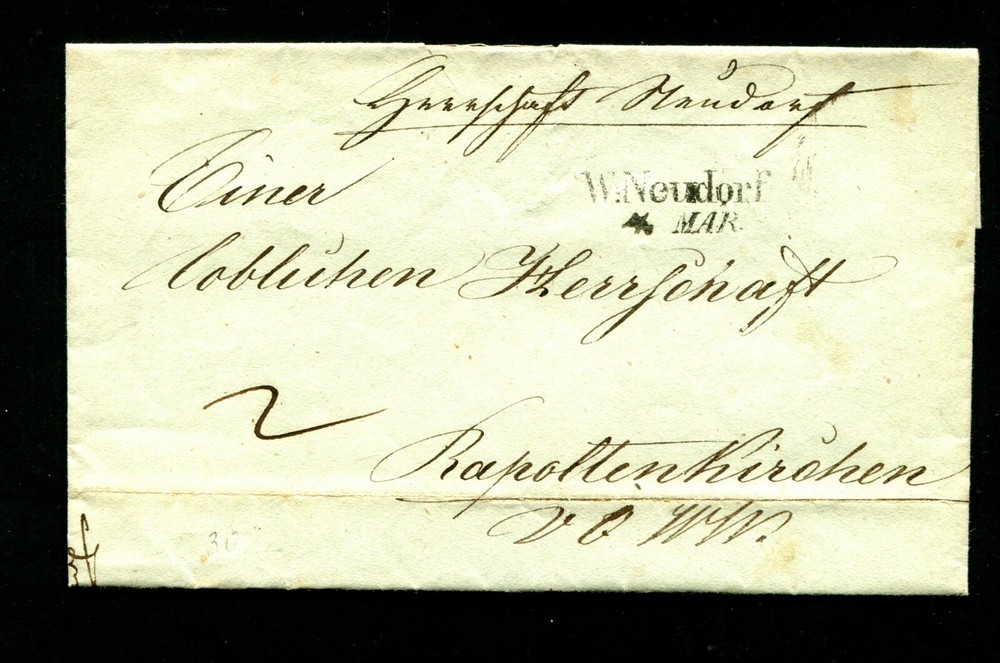 Herrschaft Neudorf
Einer
W. Neudorf
4. MÄR.
löblichen Herrschaft
2
Rapoltenkirchen
V O W W.